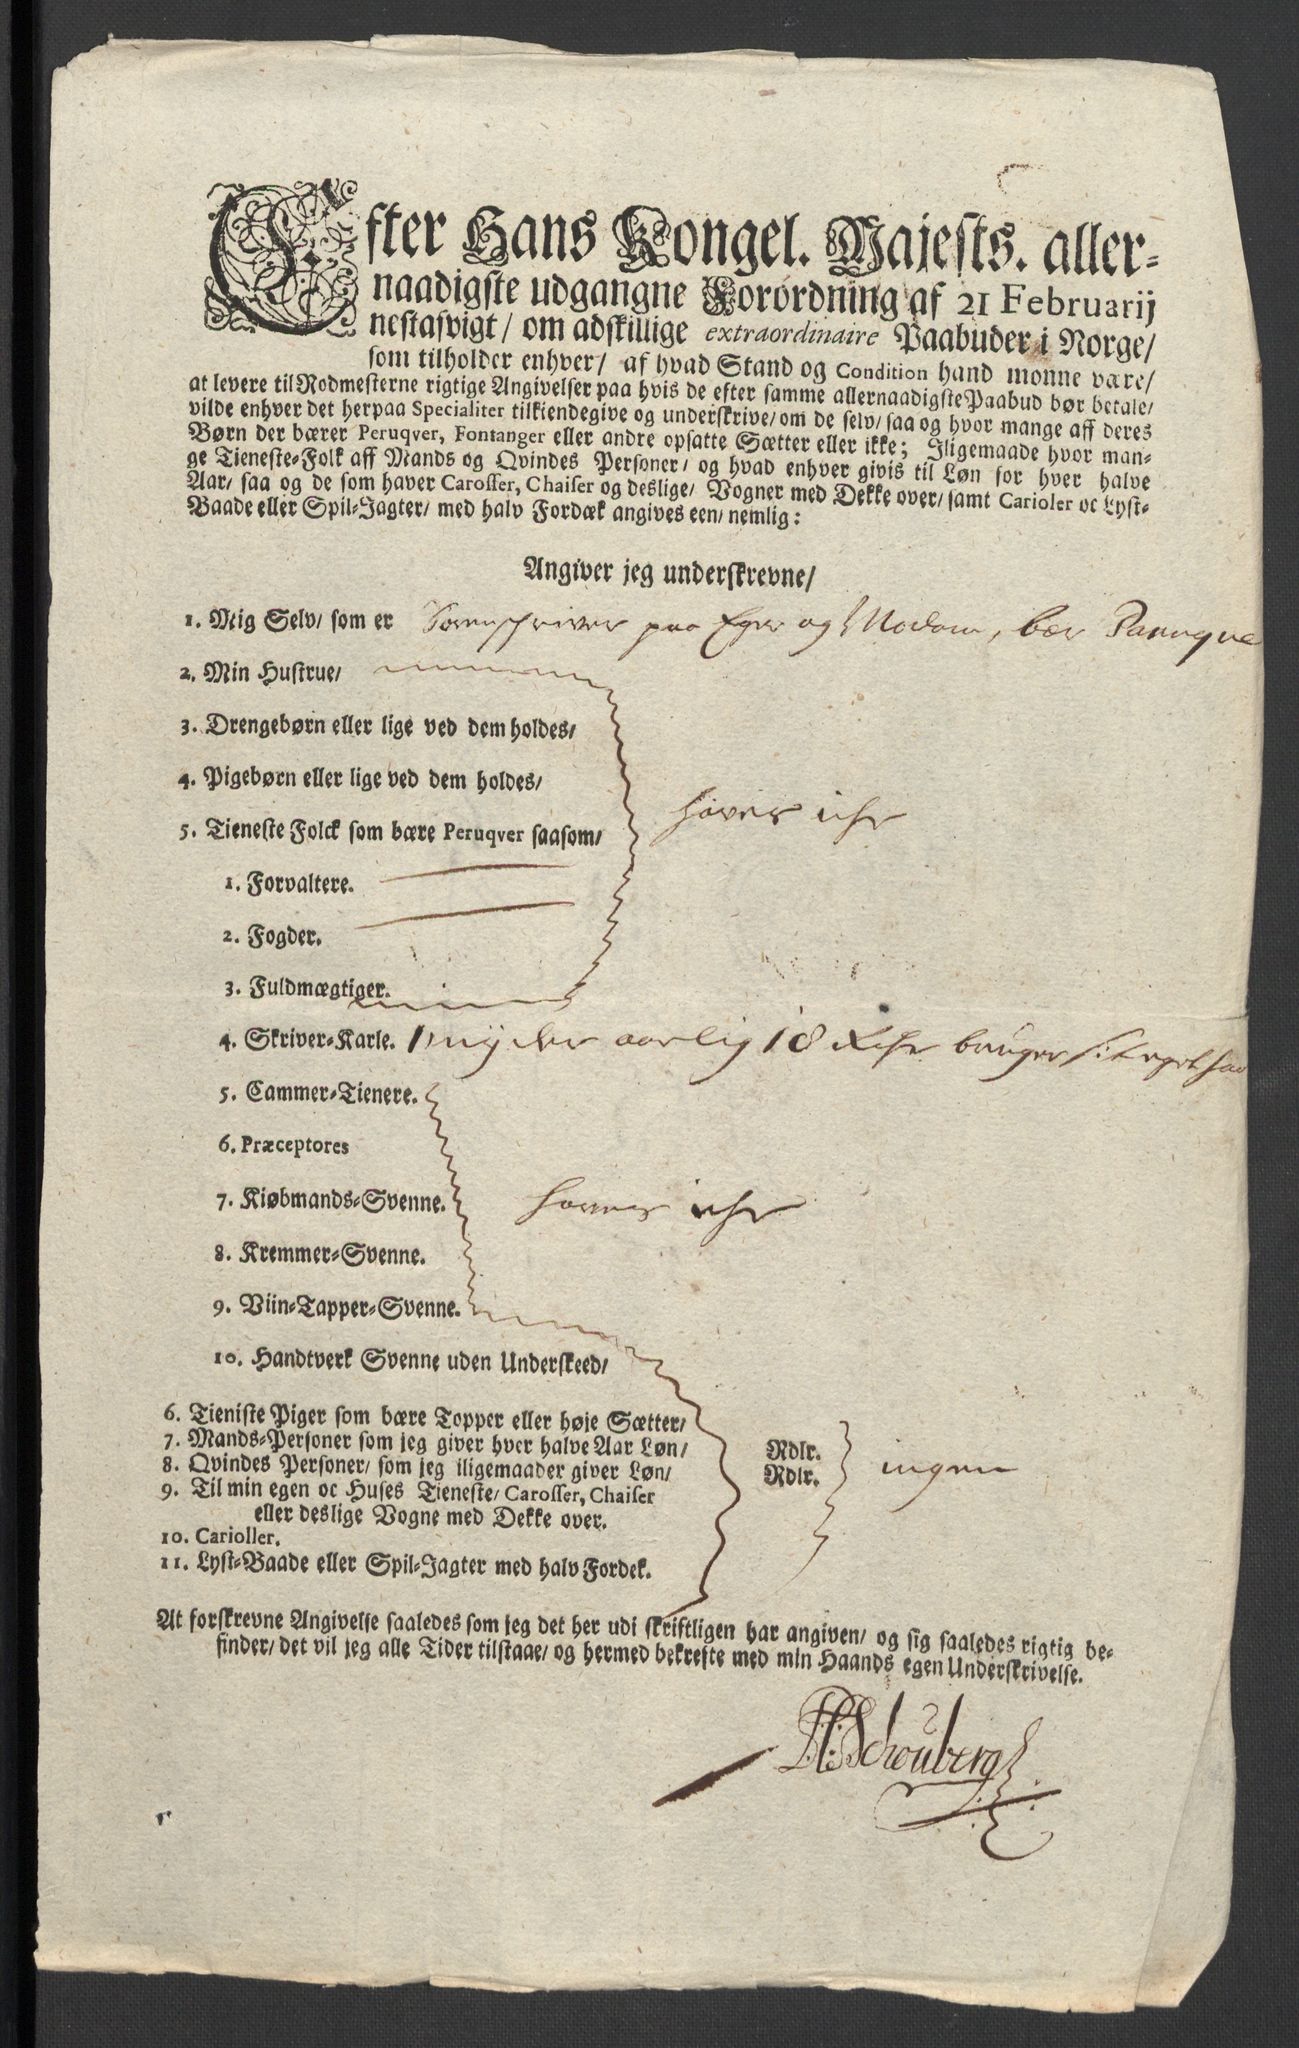 Efter Hans Kongel. Majests. aller-
naadigste udgangne Forordning af 21 Februarij
nestafvigt/ om adskillige extraordinaire Paabuder i Norge/
som tilholder enhver/ af hvad Stand og Condition hand monne være/
at levere til Rodmesterne rigtige Angivelser paa hvis de efter samme allernaadigste Paabud bør betale/
vilde enhver det herpaa Specialiter tilkiendegive og underskrive/ om de selv/ saa og hvor mange aff deres
Børn der bærer Peruqver, Fontanger eller andre opsatte Sætter eller ikke; Iligemaade hvor man-
ge Tieneste-Folk aff Mands og Qvindes Personer/ og hvad enhver givis til Løn for hver halve
Aar/ saa og de som haver Carosser, Chaiser og deslige/ Vogner med Dekke over/ samt Carioler oc Lyst-
Baade eller Spil-Jagter/ med halv Fordæk angives een/ nemlig:
Angiver jeg underskrevne/
1. Mig Selv/ som er Sorenschriver paa Eger og Modom, bær Paruqve
2. Min Hustrue/
3. Drengebørn eller lige ved dem holdes/
4. Pigebørn eller lige ved dem holdes/
hafver iche
5. Tieneste Folck som bære Peruqver saasom/
1. Forvaltere.
2. Fogder.
3. Fuldmægtiger.
4. Skriver-Karle. 1 nyder aarlig 18 Rdr bruger sit eget haar
5. Cammer-Tienere.
6. Præceptores
7. Kiøbmands-Svenne. hafver iche
8. Kremmer-Svenne.
9. Viin-Tapper-Svenne.
10. Handtverk Svenne uden Underskeed/
6. Tieniste Piger som bære Topper eller høje Sætter/
7. Mands-Personer som jeg giver hver halve Aar Løn/ Rdlr.
8. Qvindes Personer/ som jeg iligemaader giver Løn/ Rdlr. ingen
9. Til min egen oc Huses Tieneste/ Carosser, Chaiser
eller deslige Vogne med Dekke over.
10. Carioller.
11. Lyst-Baade eller Spil-Jagter med halv Fordek.
At forskrevne Angivelse saaledes som jeg det her udi skriftligen har angiven/ og sig saaledes rigtig be-
finder/ det vil jeg alle Tider tilstaae/ og hermed bekrefte med min Haands egen Underskrivelse.
Schouberg